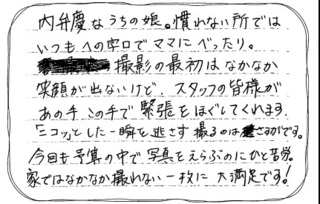 内弁慶なうちの娘。慣れない所では
いつもへの字口でママにべったり。
撮影の最初はなかなか
笑顔が出ないけど、スタッフの皆様が
あの手この手で緊張をほぐしてくれます。
「ニコッ」とした一瞬を逃さず撮るのはさすがです。
今回も予算の中で写真をえらぶのにひと苦労。
家ではなかなか撮れない一枚に大満足です!